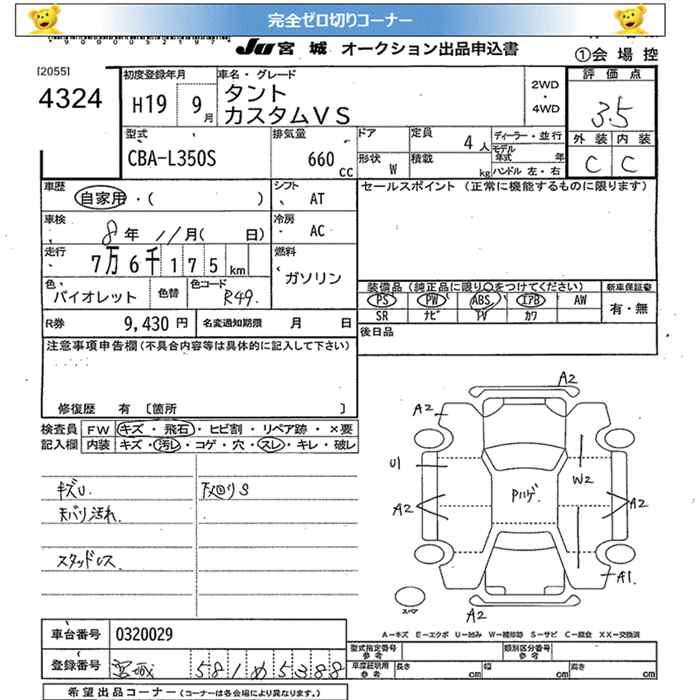 完全ゼロ切りコーナー
JU 宮城 オークション出品申込書
①会場控
[2055]
4324
初度登録年月
H19 9月
車名・グレード
タント
カスタムVS
2WD
・
4WD
評価点
3.5
外装 内装
C C
型式
CBA-L350S
排気量
660 cc
ドア
形状 W
定員 4人
積載 kg
ディーラー・並行
モデル年式 年
ハンドル 左・右
車歴
自家用・( )
シフト
AT
セールスポイント (正常に機能するものに限ります)
車検
8年 11月( 日)
冷房
AC
走行
7万6千175km
燃料
ガソリン
色
バイオレット
色替
色コード
R49
装備品 (純正品に限り○をつけてください)
新車保証書
PS PW ABS エアB AW
SR ナビ TV カワ
有・無
R券 9,430円
名変通知期限 月 日
後日品
注意事項申告欄 (不具合内容等は具体的に記入して下さい)
修復歴 有 [箇所 ]
検査員 FW キズ・飛石・ヒビ割・リペア跡・×要
記入欄 内装 キズ・汚レ・コゲ・穴・スレ・キレ・破レ
キズU.
下廻りS
天バリ汚れ.
スタッドレス.
A2
A2
U1
W2
Pハゲ
A2
A2
A1
スペア
A2
A−キズ E−エクボ U−凹み W−補修跡 S−サビ C−腐食 XX−交換済
車台番号 0320029
登録番号 宮城 581 め 5388
型式指定番号 参考
類別区分番号 参考
車庫証明用 参考 長さ cm 幅 cm 高さ cm
希望出品コーナー (コーナーは各会場により異なります。)